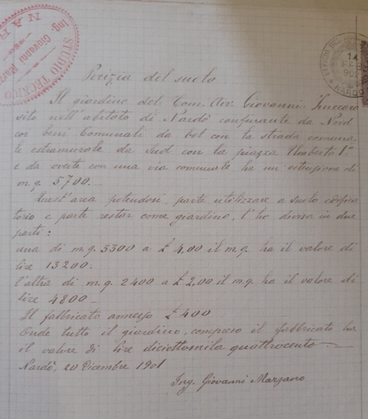 STUDIO TECNICO
Ing. Giovanni
NAR
Perizia del suolo
Il giardino del Com. Avv. Giovanni
sito nell'abitato di Nardò confinante da Nord
con beni Comunale da Est con la strada comuna
le estramurale da Sud con la piazza Umberto I°
e da ovest con una via comunale ha un'estensione di
m.q. 5700.—
Quest'area potendosi, parte utilizzare a suolo
torio e parte restar come giardino, l'ho divisa in due
parti:
una di m.q. 3300 a £ 4,00 il m.q. ha il valore di
lire 13200.
l'altra di m.q. 2400 a £ 2,00 il m.q. ha il valore di
lire 4800—
Il fabbricato annesso £ 400
Onde tutto il giardino, compreso il fabbricato ha
il valore di lire diciottomila quattrocento—
Nardò, 20 Dicembre 1901
Ing. Giovanni Marzano